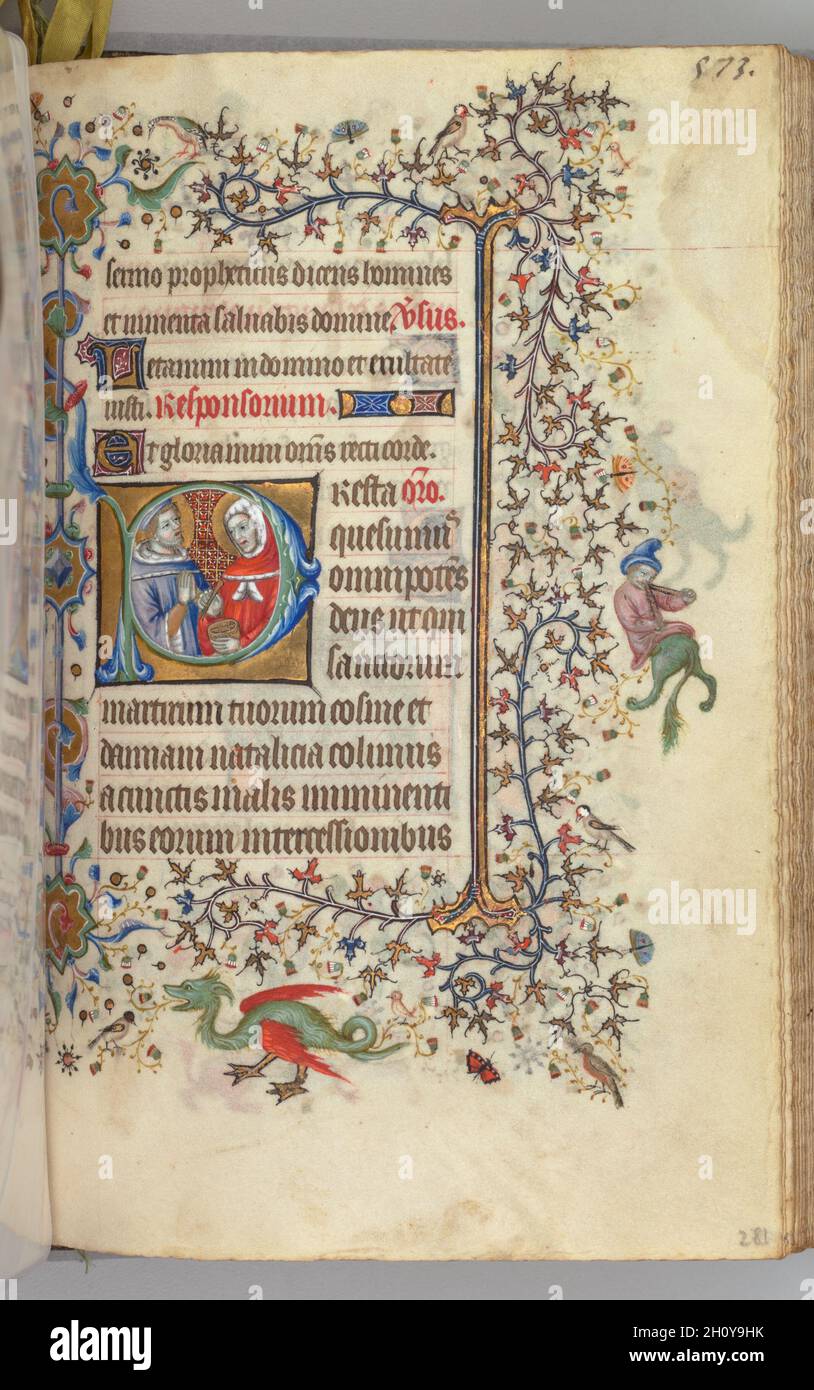 573.
sermo propheticus dicens homines
et iumenta saluabis domine Vsus.
Letamini in domino et exultate
iusti. Responsorium.
Et gloriamini oms recti corde.
Presta Oro.
quesumus
omnipotes
deus ut qui
sanctorum
martirum tuorum cosme et
damiani natalicia colimus
a cunctis malis imminenti
bus eorum intercessionibus
281
alamy
Image ID: 2H0Y9HK
www.alamy.com